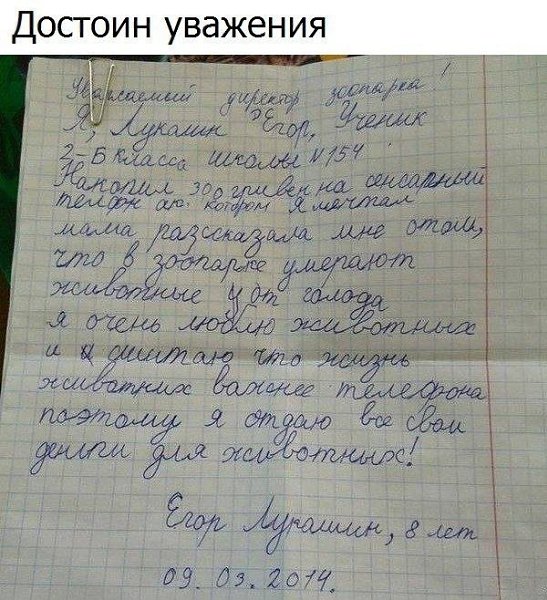 Достоин уважения
Уважаемый директор зоопарка!
Я, Лукашин Егор, Ученик
2-Б класса школы №154
Накопил 300 гривен на сенсарный
телфон аю. котором я мечтал
мама разссказала мне отом,
что в зоопарке умерают
животные у от голода
я очень люблю животных
и я считаю что жизнь
животних важнее телефона
поэтому я отдаю все свои
деньги для животных!
Егор Лукашин, 8 лет
09. 03. 2014.